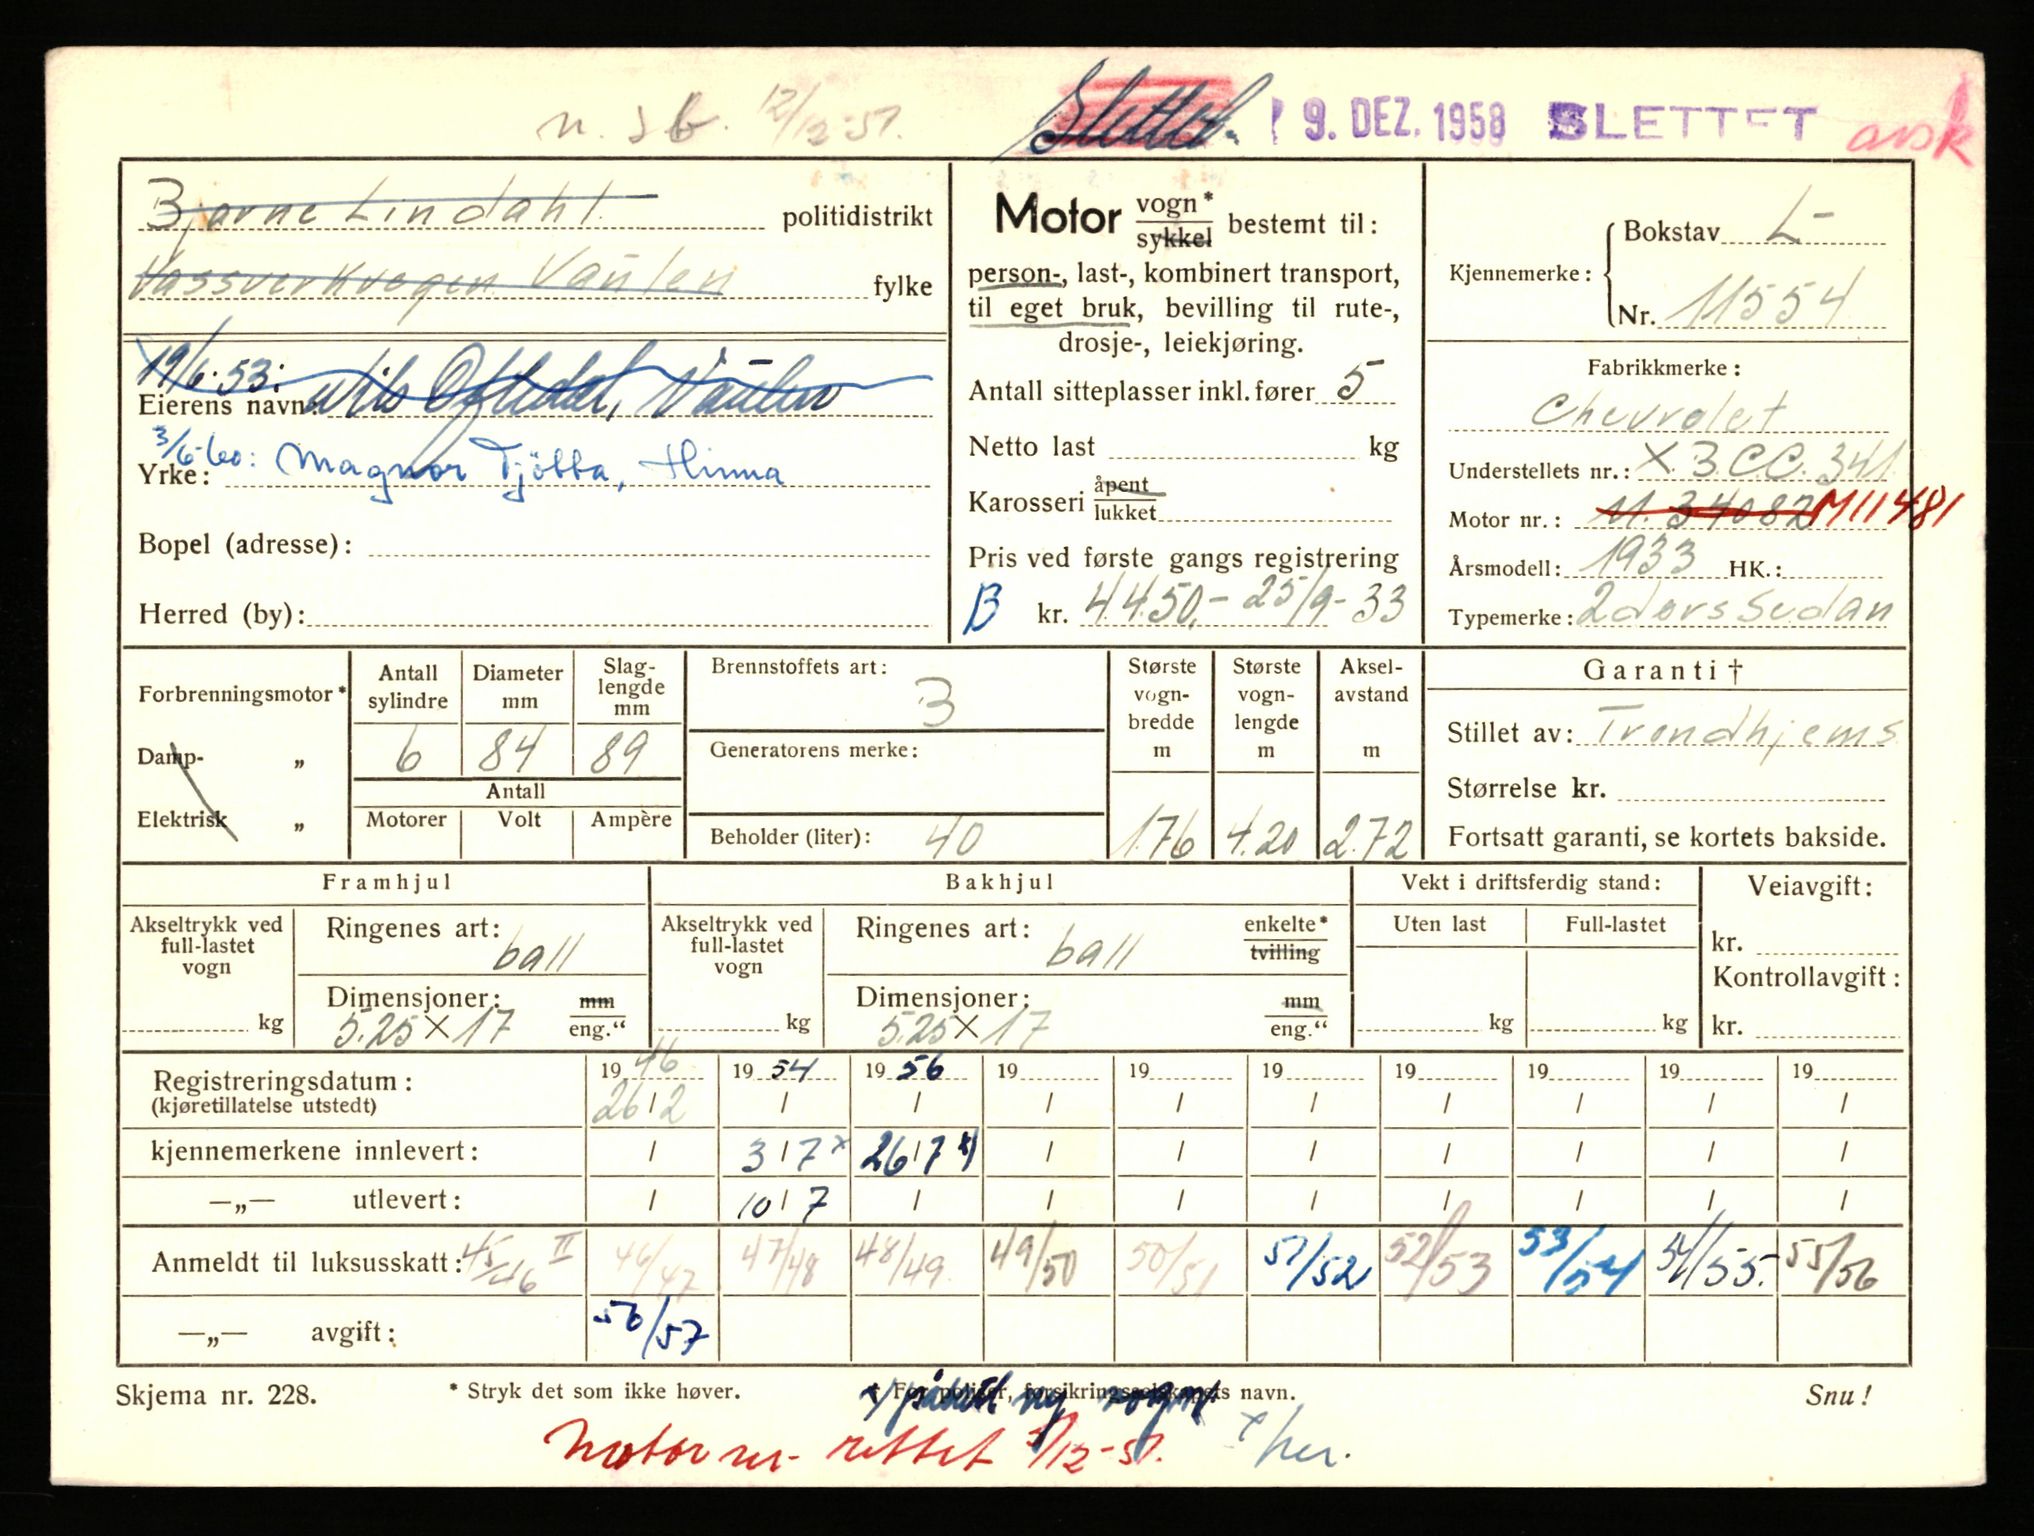 n. s b. 12/12-51. Slettet. 9. DEZ. 1958 SLETTET avsk
Bjarne Lindahl politidistrikt
Vassverkvegen Vaulen fylke
19/6.53: Nils Oftedal, Vaulen
Eierens navn:
3/6-60: Magnor Tjöbba, Hinna
Yrke:
Bopel (adresse):
Herred (by):
Motor vogn* sykkel bestemt til:
person-, last-, kombinert transport,
til eget bruk, bevilling til rute-,
drosje-, leiekjøring.
Antall sitteplasser inkl. fører 5
Netto last kg
Karosseri åpent lukket
Pris ved første gangs registrering
B kr. 4450,- 25/9-33
Kjennemerke: Bokstav L-
Nr. 11554
Fabrikkmerke:
Chevrolet
Understellets nr.: X.3.C.C.341
Motor nr.: M. 34082 M11481
Årsmodell: 1933 HK.:
Typemerke: 2dørs Sedan
Forbrenningsmotor*
Damp- „
Elektrisk „
Antall sylindre 6
Diameter mm 84
Slaglengde mm 89
Antall
Motorer Volt Ampère
Brennstoffets art: B
Generatorens merke:
Beholder (liter): 40
Største vogn-bredde m 1.76
Største vogn-lengde m 4.20
Aksel-avstand m 2.72
Garanti †
Stillet av: Trondhjems
Størrelse kr.
Fortsatt garanti, se kortets bakside.
Framhjul
Akseltrykk ved full-lastet vogn kg
Ringenes art: ball
Dimensjoner: mm
5.25 × 17 eng.“
Bakhjul
Akseltrykk ved full-lastet vogn kg
Ringenes art: ball enkelte* tvilling
Dimensjoner: mm
5.25 × 17 eng.“
Vekt i driftsferdig stand:
Uten last Full-lastet
kg kg
Veiavgift:
kr.
Kontrollavgift:
kr.
Registreringsdatum: 1946 1954 1956 19 19 19 19 19 19 19
(kjøretillatelse utstedt) 26/2 / / / / / / / / /
kjennemerkene innlevert: / 3/7 x 26/7 x) / / / / / / /
—„— utlevert: / 10/7 / / / / / / / /
Anmeldt til luksusskatt: 45/46 II 46/47 47/48 48/49 49/50 50/51 51/52 52/53 53/54 54/55. 55/56
—„— avgift: 56/57
Skjema nr. 228. * Stryk det som ikke høver. † For politier, forsikringsselskapets navn. Snu!
x) påsatt ny vogn.
Motor nr. rettet 5/12-51. x her.